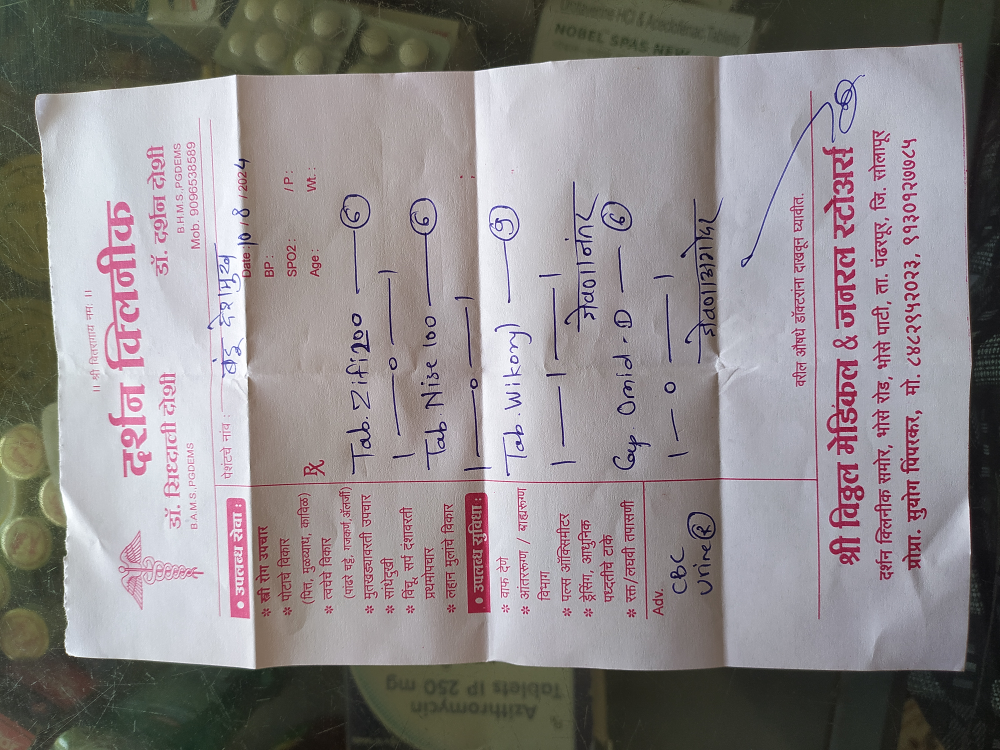 ।। श्री वितरागाय नमः ।।
दर्शन क्लिनीक
डॉ. सिध्दाली दोशी
B.A.M.S.,PGDEMS
डॉ. दर्शन दोशी
B.H.M.S.,PGDEMS
Mob. 9096538589
पेशंटचे नांव : बंडू देशमुख
Date : 10/8/2024
BP :
SPO2 : / P :
Age : Wt. :
• उपलब्ध सेवा :
* स्त्री रोग उपचार
* पोटाचे विकार
(पित्त, मुळव्याध, काविळ)
* त्वचेचे विकार
(पांढरे चट्टे, गजकर्ण,अ‍ॅलर्जी)
* मुतखड्यावरती उपचार
* सांधेदुखी
* विंचू, सर्प दंशावरती
प्रथमोपचार
* लहान मुलांचे विकार
• उपलब्ध सुविधा :
* वाफ देणे
* आंतररुग्ण / बाह्यरुग्ण
विभाग
* पल्स ऑक्सिमीटर
* ड्रेसिंग, आधुनिक
पध्दतीचे टाके
* रक्त/लघवी तपासणी
Adv.
CBC
Urine (R)
Rx
Tab. Zifi 200 — 6
1 — 0 — 1
Tab. Nise 100 — 6
1 — 0 — 1
Tab. Wikoryl — 9
1 — 1 — 1
जेवणानंतर
Cap. Omid-D — 6
1 — 0 — 1
जेवणाअगोदर
वरील औषधे डॉक्टरांना दाखवून घ्यावीत.
श्री विठ्ठल मेडिकल & जनरल स्टोअर्स
दर्शन क्लिनीक समोर, भोसे रोड, भोसे पाटी, ता. पंढरपूर, जि. सोलापूर
प्रोप्रा. सुयोग पिंपरकर, मो. ८४८२९५२०२३, ९१३०१२७७८५
Drotaverine HCl & Aceclofenac Tablets
NOBEL SPAS NEW
Azithromycin
Tablets IP 250 mg